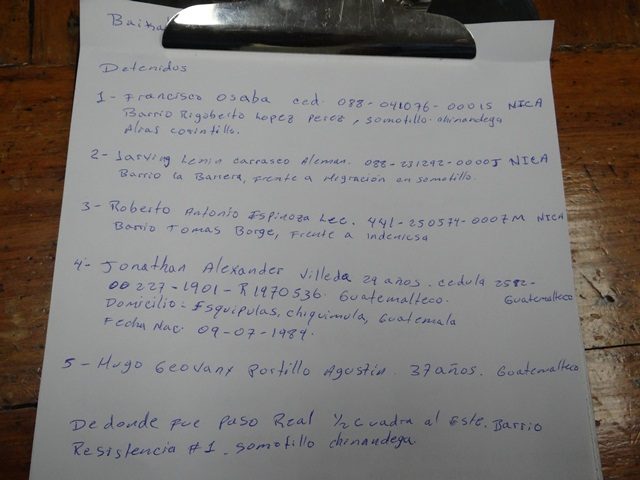 Detenidos
1- Francisco Osaba ced. 088-041076-0001S NICA
Barrio Rigoberto Lopez Perez, somotillo-chinandega
Alias cosintillo.
2- Jarving Lenin carrasco Aleman. 088-231292-0000J NICA
Barrio la Barrera, Frente a Migración en somotillo.
3- Roberto Antonio Espinoza Lee. 441-250574-0007M NICA
Barrio Tomas Borge, Frente a indeniesa
4- Jonathan Alexander Villeda 29 años. cedula 2582-
00227-1901-R1970536 Guatemalteco. Guatemalteco
Domicilio: Esquipulas, chiquimula, Guatemala
Fecha Nac. 09-07-1984.
5- Hugo Geovany Portillo Agustin. 37 años. Guatemalteco
De donde fue Paso Real 1/2 cuadra al Este. Barrio
Resistencia #1. somotillo chinandega.